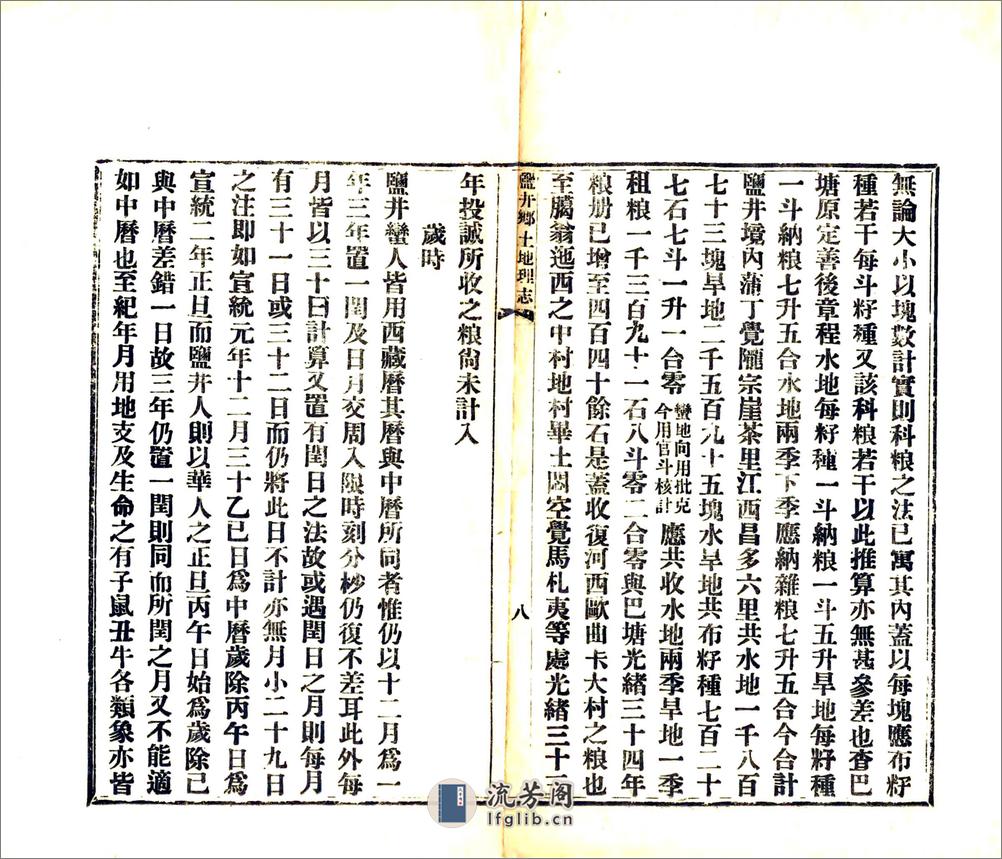 無論大小以塊數計實則科粮之法已寓其內蓋以每塊應布籽
種若干每斗籽種又該科粮若干以此推算亦無甚參差也查巴
塘原定善後章程水地每籽種一斗納粮一斗五升旱地每籽種
一斗納粮七升五合水地兩季下季應納雜粮七升五合今合計
鹽井境內蒲丁覺隴宗崖茶里江西昌多六里共水地一千八百
七十三塊旱地二千五百九十五塊水旱地共布籽種七百二十
七石七斗一升一合零蠻地向用批克今用官斗核計應共收水地兩季旱地一季
租粮一千三百九十一石八斗零二合零與巴塘光緒三十四年
粮册已增至四百四十餘石是蓋收復河西歐曲卡大村之粮也
至臈翁迤西之中村地村畢土閟空覺馬札夷等處光緒三十二
年投誠所收之粮尙未計入
歲時
鹽井蠻人皆用西藏曆其曆與中曆所同者惟仍以十二月爲一
年三年置一閏及日月交周入限時刻分杪仍復不差耳此外每
月皆以三十日計算又置有閏日之法故或遇閏日之月則每月
有三十一日或三十二日而仍將此日不計亦無月小二十九日
之注即如宣統元年十二月三十乙巳日爲中曆歲除丙午日爲
宣統二年正旦而鹽井人則以華人之正旦丙午日始爲歲除已
與中曆差錯一日故三年仍置一閏則同而所閏之月又不能適
如中曆也至紀年月用地支及生命之有子鼠丑牛各類象亦皆
鹽井鄉土地理志
八
流芳阁
lfglib.cn